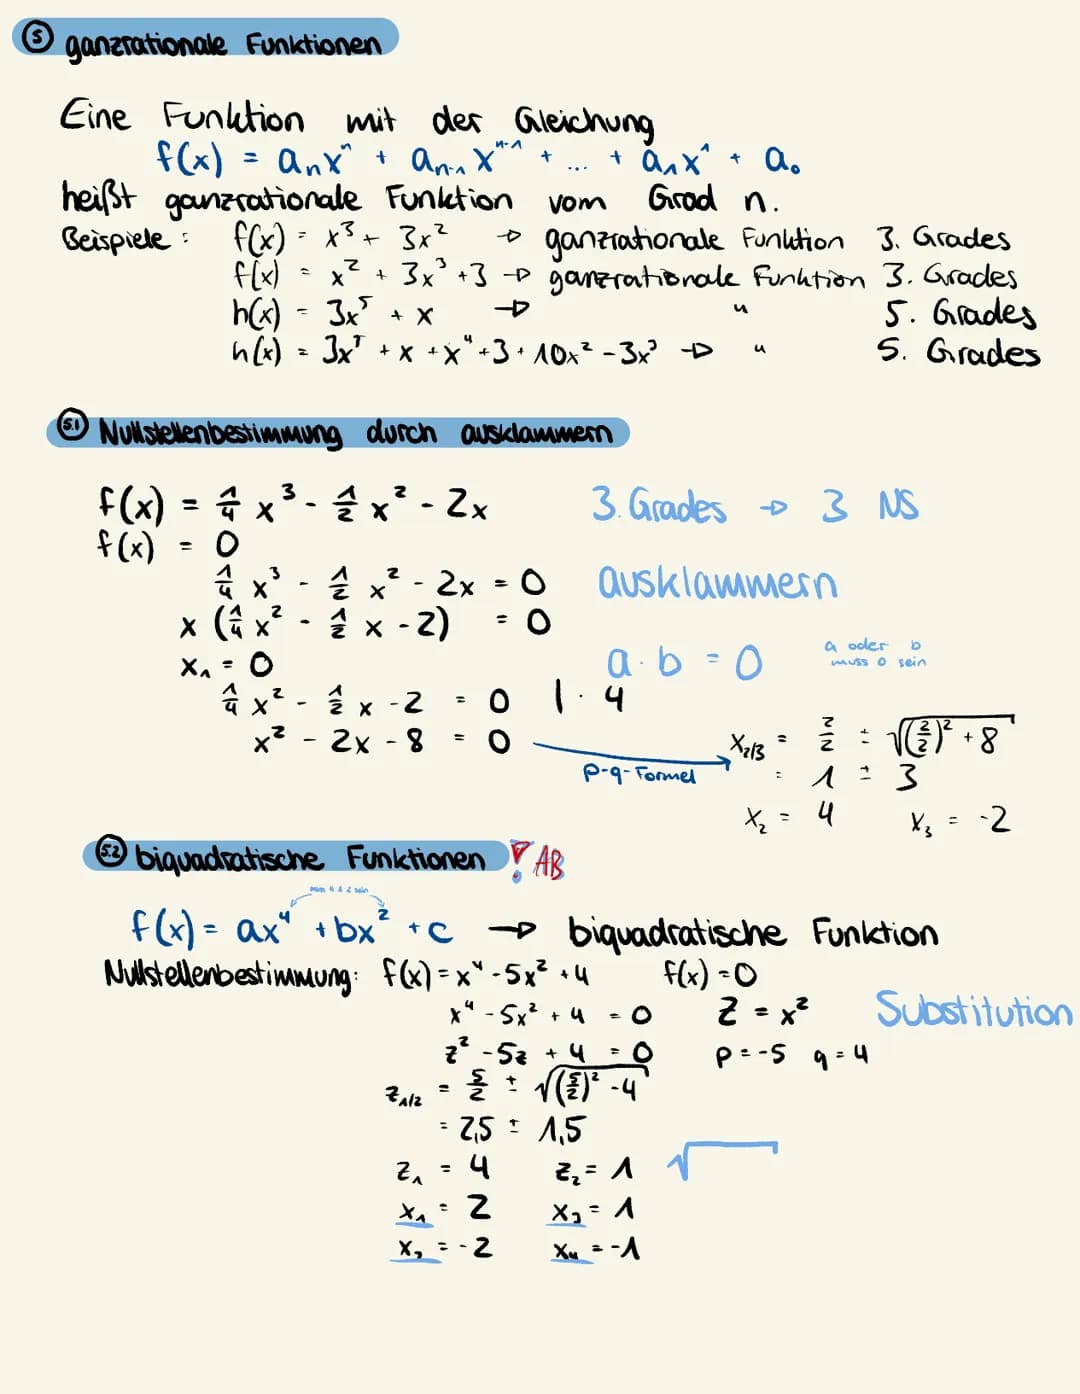 5 ganzrationale Funktionen
Eine Funktion mit der Gleichung
f(x) = aₙxⁿ + aₙ₋₁xⁿ⁻¹ + ... + a₁x¹ + a₀
heißt ganzrationale Funktion vom Grad n.
Beispiele: f(x) = x³ + 3x² → ganzrationale Funktion 3. Grades
f(x) = x² + 3x³ + 3 → ganzrationale Funktion 3. Grades
h(x) = 3x⁵ + x → " 5. Grades
h(x) = 3x⁵ + x + x⁴ + 3 + 10x² - 3x³ → " 5. Grades
5.1 Nullstellenbestimmung durch ausklammern
f(x) = 1/4 x³ - 1/2 x² - 2x 3. Grades → 3 NS
f(x) = 0
1/4 x³ - 1/2 x² - 2x = 0 ausklammern
x (1/4 x² - 1/2 x - 2) = 0
x₁ = 0 a · b = 0 a oder b muss 0 sein
1/4 x² - 1/2 x - 2 = 0 | · 4
x² - 2x - 8 = 0 p-q-Formel → x₂/₃ = 2/2 ± √((2/2)² + 8)
= 1 ± 3
x₂ = 4 x₃ = -2
5.2 biquadratische Funktionen ! AB
muss 4 & 2 sein
f(x) = ax⁴ + bx² + c → biquadratische Funktion
Nullstellenbestimmung: f(x) = x⁴ - 5x² + 4 f(x) = 0
x⁴ - 5x² + 4 = 0 z = x² Substitution
z² - 5z + 4 = 0 p = -5 q = 4
z₁/₂ = 5/2 ± √((5/2)² - 4)
= 2,5 ± 1,5
z₁ = 4 z₂ = 1 √
x₁ = 2 x₃ = 1
x₂ = -2 x₄ = -1